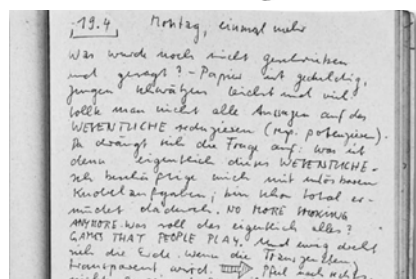 19.4 Montag, einmal mehr
Was wurde noch nicht geschrieben
und gesagt? - Papier ist geduldig,
Zungen schwätzen leicht und viel.
sollte man nicht alle Aussagen auf das
WESENTLICHE reduzieren (resp. potenzieren).
Da drängt sich die Frage auf: was ist
denn eigentlich dieses WESENTLICHE -
Ich beschäftige mich mit unlösbaren
Knobelaufgaben; bin schon total er-
müdet dadurch. NO MORE SMOKING
ANYMORE. Was soll das eigentlich alles?
GAMES THAT PEOPLE PLAY. Und ewig dreht
sich die Erde. wenn die
transparent wird. Pfeil nach rechts